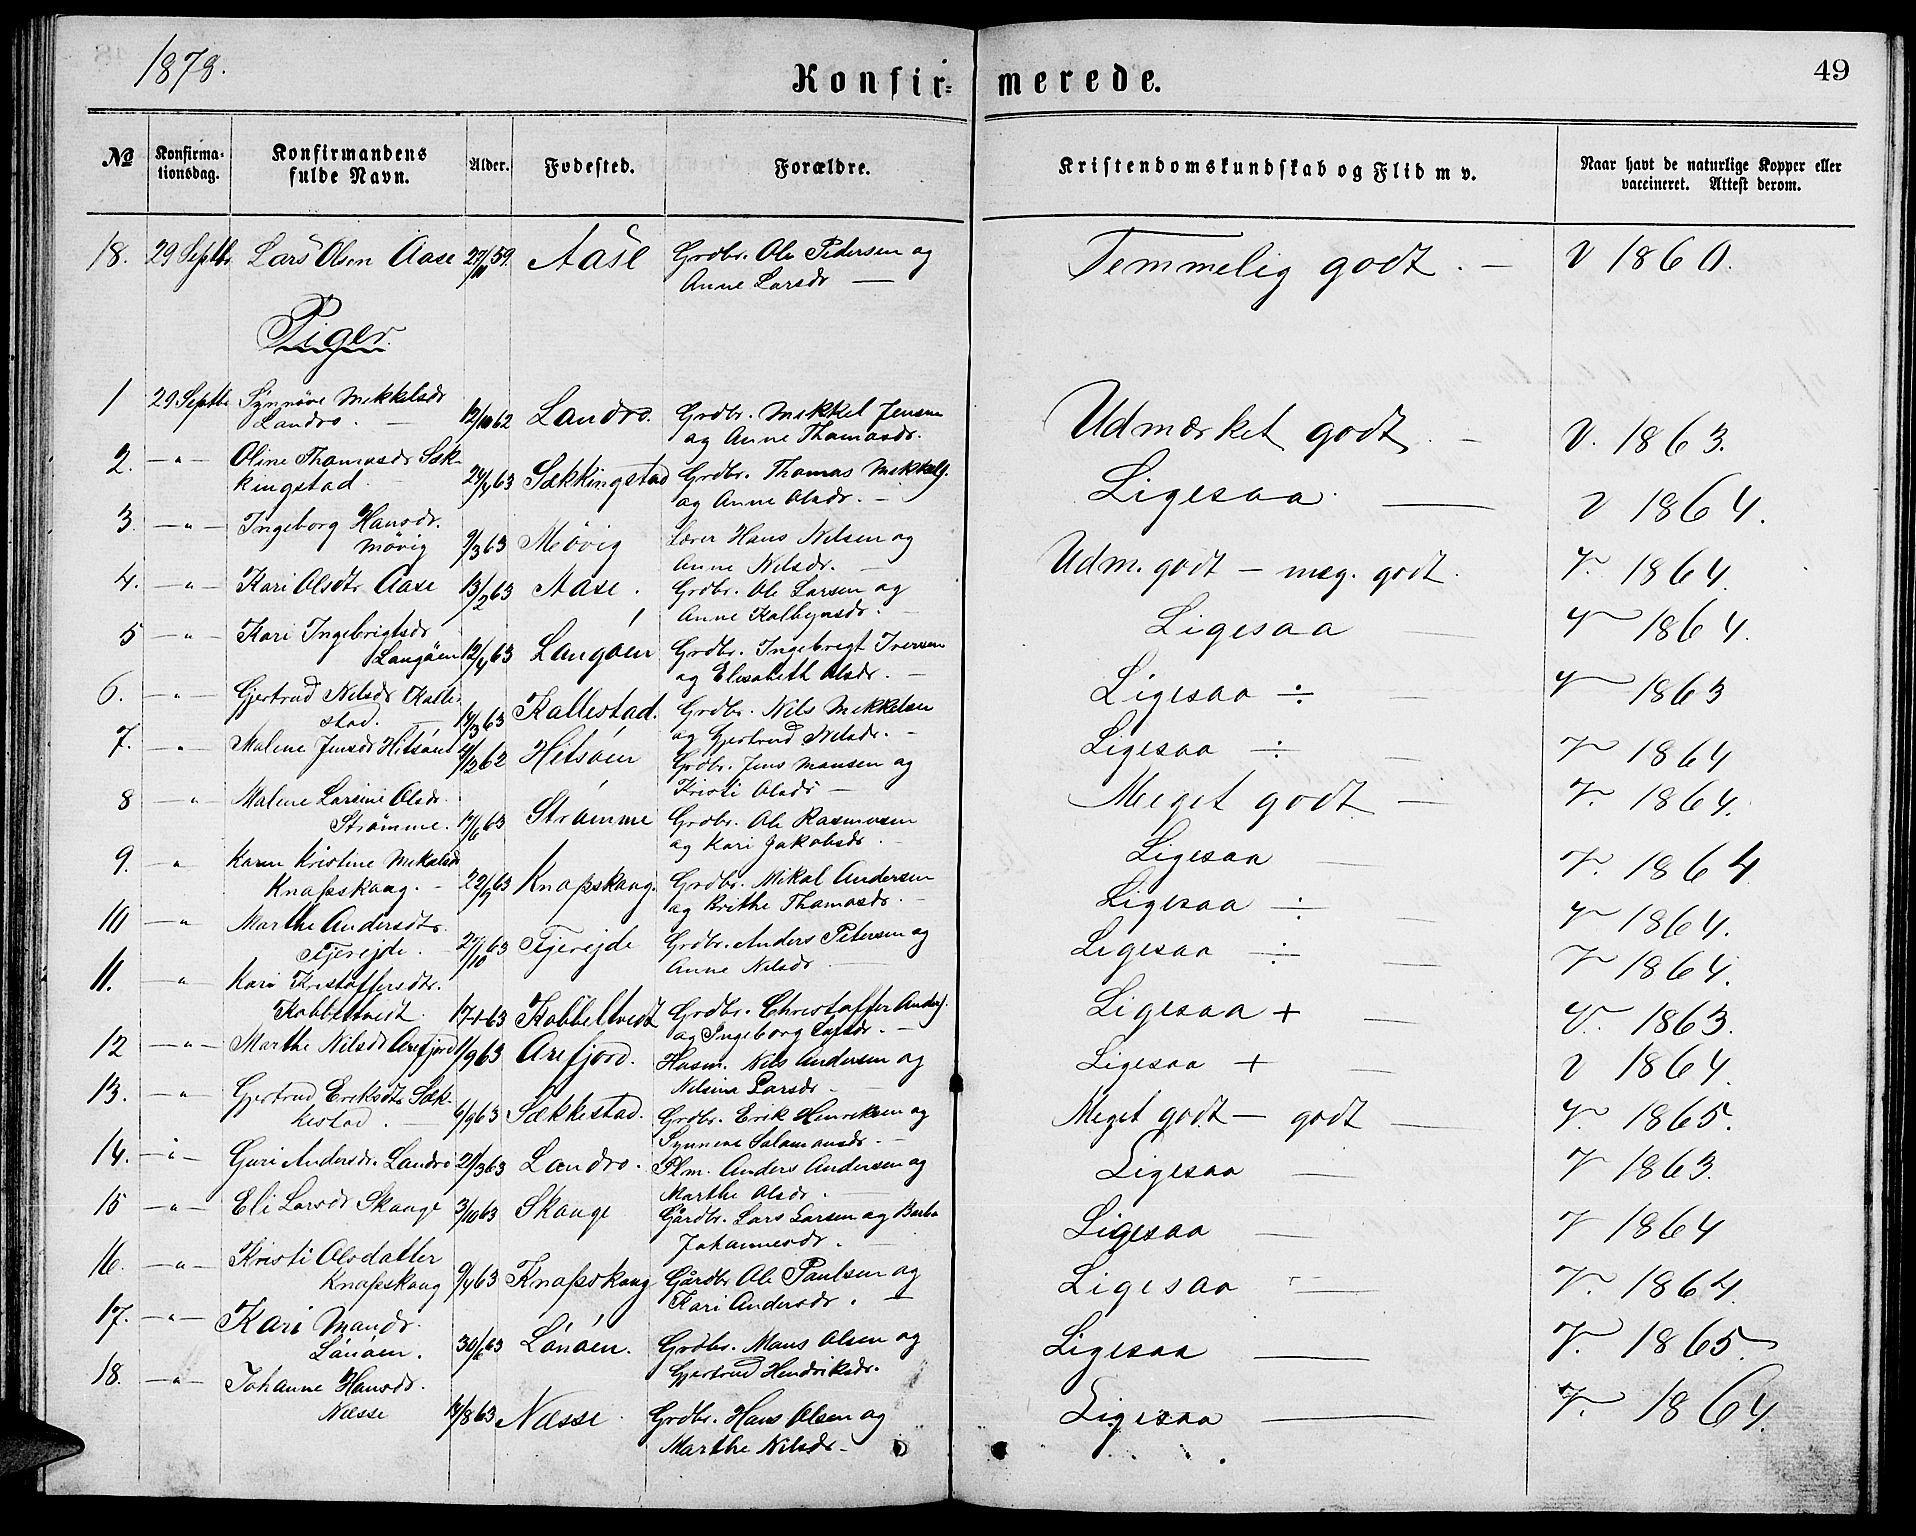 1878.
Konfirmerede.
49
No Konfirmationsdag. Konfirmandens fulde Navn. Alder. Fødested. Forældre. Kristendomskundskab og Flid m v. Naar havt de naturlige Kopper eller vaccineret. Attest derom.
18. 29 Septbr Lars Olsen Aase 27/11 59. Aase Grdbr. Ole Pedersen og Temmelig godt. — V 1860.
Anne Larsdr —
Piger.
1 29 Septbr Synnöve Mekkelsdr
Landro. — 12/10 62 Landro. Grdbr. Mekkel Jensen Udmærket godt. — V. 1863.
og Anne Thomasdr.
2. — " — Oline Thomasdr Sæk-
kingstad. 24/4 63 Sækkingstad Grdbr. Thomas Mekkels. Ligesaa. — V 1864.
og Anne Olsdr. —
3. — " — Ingeborg Hansdr.
Mövig 9/3 63 Mövig Lærer Hans Nilsen og Udm. godt — meg. godt. V. 1864.
Anne Nilsdr. —
4. — " — Kari Olsdtr Aase 13/2 63 Aase. Grdbr. Ole Larsen og Ligesaa — V 1864.
Anne Kolbejnsdr. —
5 — " — Kari Ingebrigtsdr
Langöen 12/4 63 Langöen Grdbr. Ingebregt Iversen Ligesaa ÷ — V 1863
og Elisabeth Olsdr. —
6. — " — Gjertrud Nilsdr Kalle-
stad. 14/3 63 Kallestad. Grdbr. Nils Mekkelsen Ligesaa ÷ — V 1864
og Gjertrud Nilsdr. —
7. — " — Malene Jensdr Hitsöen 4/12 62 Hitsöen Grdbr. Jens Monsen og Meget godt — V. 1864.
Kristi Olsdr —
8 — " — Malene Larsine Olsdr.
Strömme. 17/6 63 Strömme Grdbr. Ole Rasmusen Ligesaa — V. 1864
og Kari Jakobsdr. —
9. — " Karen Kristine Mekalsdr
Knapskaag. — 22/2 63 Knapskaag. Grdbr. Mikal Andersen Ligesaa ÷ — V 1864.
og Brithe Thomasdr. —
10 — " Marthe Andersdtr.
Tjerejde. 27/10 63 Tjerejde Grdbr. Anders Petersen og Ligesaa ÷ — V 1864.
Anne Nilsdr —
11. — " Kari Kristoffersdtr.
Kobbeltvedt. 17-1-63 Kobbeltvedt Grdbr. Christoffer Anders. Ligesaa + — V. 1863.
og Ingeborg
12 — " — Marthe Nilsdr Arefjord 1/9 63 Arefjord. Husm. Nils Andersen og Ligesaa + — V 1864.
Nilsina Larsdr —
13. — " Gjertrud Eriksdtr Sæk-
kestad. — 6/9 63 Sækkestad. Grdbr. Erik Henriksen og Meget godt — godt — V. 1865.
Synneve Salamonsdr. —
14. — " — Guri Andersdr. Landro 21/3 63 Landro. Plm. Anders Andersen og Ligesaa — V 1863.
Marthe Olsdr. —
15 — " — Eli Larsdr Skaage 3/10 63 Skaage Gårdbr. Lars Larsen og Barbo Ligesaa — V 1864
Johannesdr. —
16. — " — Kristi Olsdatter
Knapskaag 9/4 63 Knapskaag Gårdbr Ole Paulsen og Ligesaa — V. 1864.
Kari Andersdr. —
17. — " — Kari Monsdr.
Lönöen. 30/6 63 Lönöen. Grdbr. Mons Olsen og Ligesaa — V. 1865
Gjertrud Hendriksdr.
18. — " — Johanne Hansdr.
Næsse 14/8 63 Næsse. Grdbr. Hans Olsen og Ligesaa — V. 1864.
Marthe Nilsdr —